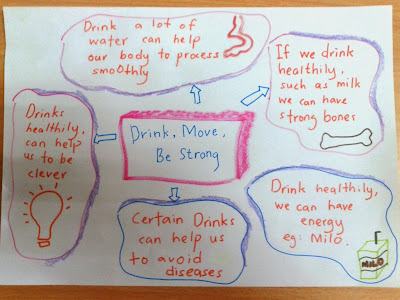 Drink a lot of
water can help
our body to process
smoothly
If we drink
healthily,
such as milk
we can have
strong bones
Drinks
healthily,
can help
us to be
clever
Drink, Move,
Be Strong
Drink healthily,
we can have
energy
eg: Milo.
MILO
Certain Drinks
can help us
to avoid
diseases